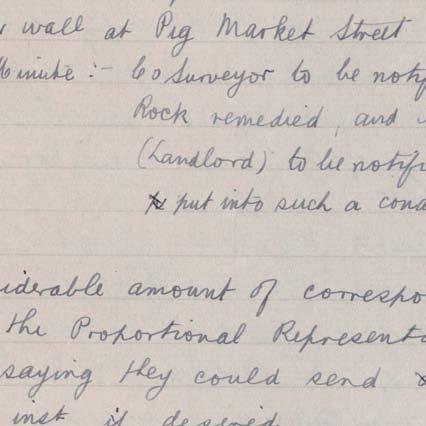 wall at Pig Market Street
Minute :- Co Surveyor to be notif
Rock remedied, and
(Landlord) to be notifi
put into such a cond
iderable amount of correspo
the Proportional Representa
saying they could send
inst if desired